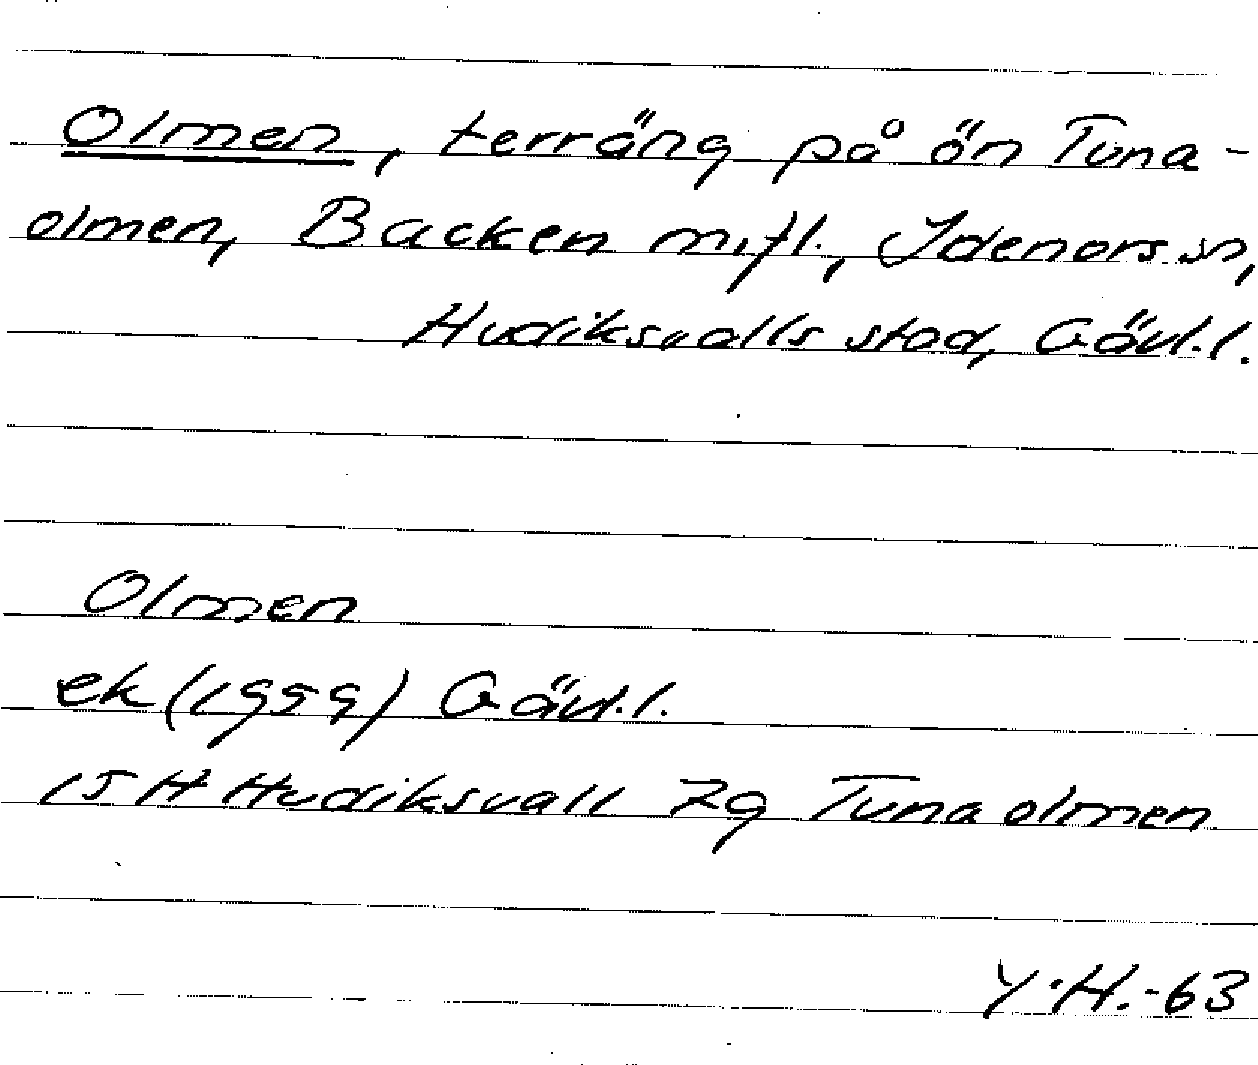 Olmen, terräng på ön Tuna-
olmen, Backen m.fl., Idenors sn,
Hudiksvalls stad, Gävl.l.
Olmen
ek (1959) Gävl.l.
15 H Hudiksvall 7g Tunaolmen
Y.H.-63